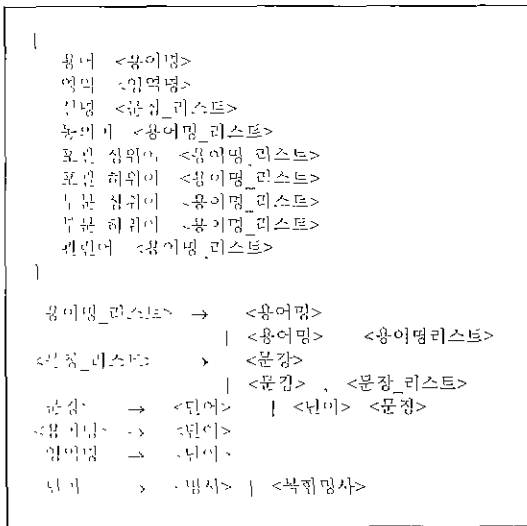 [
용어 <용어명>
영역 <영역명>
설명 <문장_리스트>
동의어 <용어명_리스트>
포함 상위어 <용어명_리스트>
포함 하위어 <용어명_리스트>
부분 상위어 <용어명_리스트>
부분 하위어 <용어명_리스트>
관련어 <용어명_리스트>
]
<용어명_리스트> → <용어명>
| <용어명> <용어명리스트>
<문장_리스트> → <문장>
| <문장> , <문장_리스트>
<문장> → <단어> | <단어> <문장>
<용어명> → <단어>
영역명 → <단어>
단어 → <명사> | <복합명사>